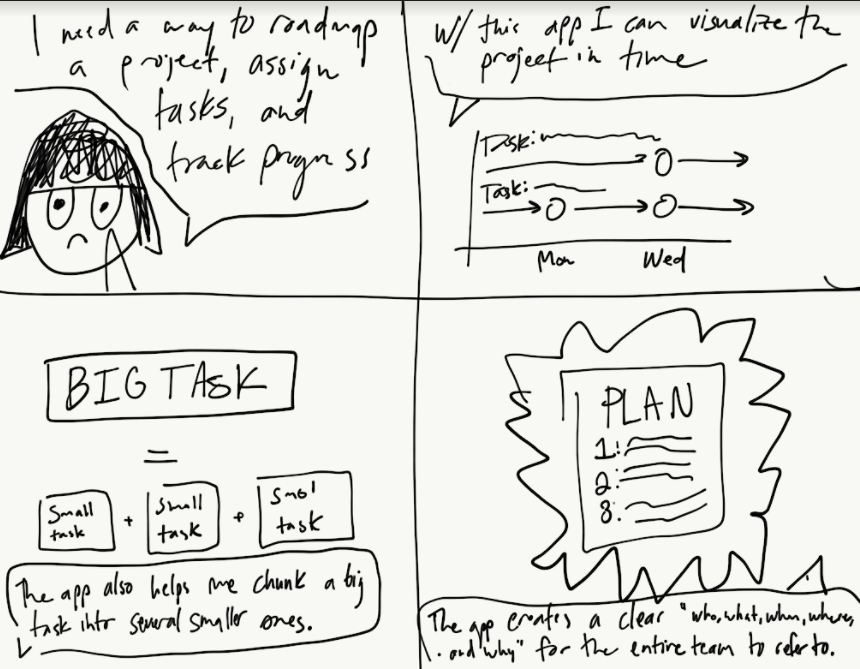 I need a way to roadmap
a project, assign
tasks, and
track progress
w/ this app I can visualize the
project in time
Task:
Task:
Mon
Wed
BIG TASK
=
Small
task
+
Small
task
+
Smal
task
The app also helps me chunk a big
task into several smaller ones.
PLAN
1:
2:
3:
The app creates a clear "who, what, when, where,
and why" for the entire team to refer to.